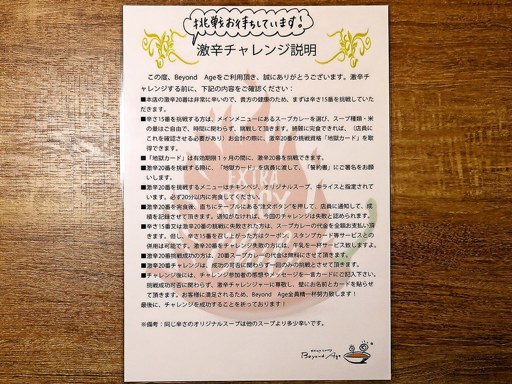 挑戦お待ちしています！
激辛チャレンジ説明
この度、Beyond Ageをご利用頂き、誠にありがとうございます。激辛チ
ャレンジする前に、下記の内容をご確認ください：
■本店の激辛20番は非常に辛いので、貴方の健康のため、まずは辛さ15番を挑戦していた
だきます。
■辛さ15番を挑戦する方は、メインメニューにあるスープカレーを選び、スープ種類・米
の量はご自由で、時間に関わらず、挑戦して頂きます。綺麗に完食できれば、（店員に
これを確認させる必要があり）お会計の際に、激辛20番の挑戦資格「地獄カード」を取
得できます。
■「地獄カード」は有効期限1ヶ月の間に、激辛20番を挑戦できます。
■激辛20番を挑戦する際に、「地獄カード」を店員に渡して、「誓約書」にご署名をお願
いします。
■激辛20番を挑戦するメニューはチキンベジ、オリジナルスープ、中ライスと指定されて
います。必ず20分以内に完食してください。
■激辛20番を完食後、直ちにテーブルにある“注文ボタン”を押して、店員に通知して、成
績を記録させて頂きます。通知がなければ、今回のチャレンジは失敗と認められます。
■辛さ15番又は激辛20番の挑戦に失敗された方は、スープカレーの代金を全額お支払い頂
きます。但し、辛さ15番を召し上がった方はクーポン、スタンプカード等サービスとの
併用は可能です。激辛20番をチャレンジ失敗の方には、牛乳を一杯サービス致しますよ。
■激辛20番挑戦成功の方は、20番スープカレーの代金は無料にさせて頂きます。
■激辛20番チャレンジは、成功の可否に関わらず一回のみの挑戦とさせて頂きます。
■チャレンジ後には、チャレンジ参加者の感想やメッセージを一言カードにご記入下さい。
挑戦成功可否に関わらず、激辛チャレンジャーに尊敬し、壁にお名前とカードを貼らせ
て頂きます。お客様に満足されるため、Beyond Age全員精一杯努力致します！
最後に、チャレンジを成功することを祈っております！
※備考：同じ辛さのオリジナルスープは他のスープより多少辛いです。
Beyond Age